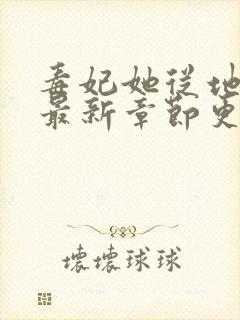 毒妃她從地
最新章節更
壞壞球球